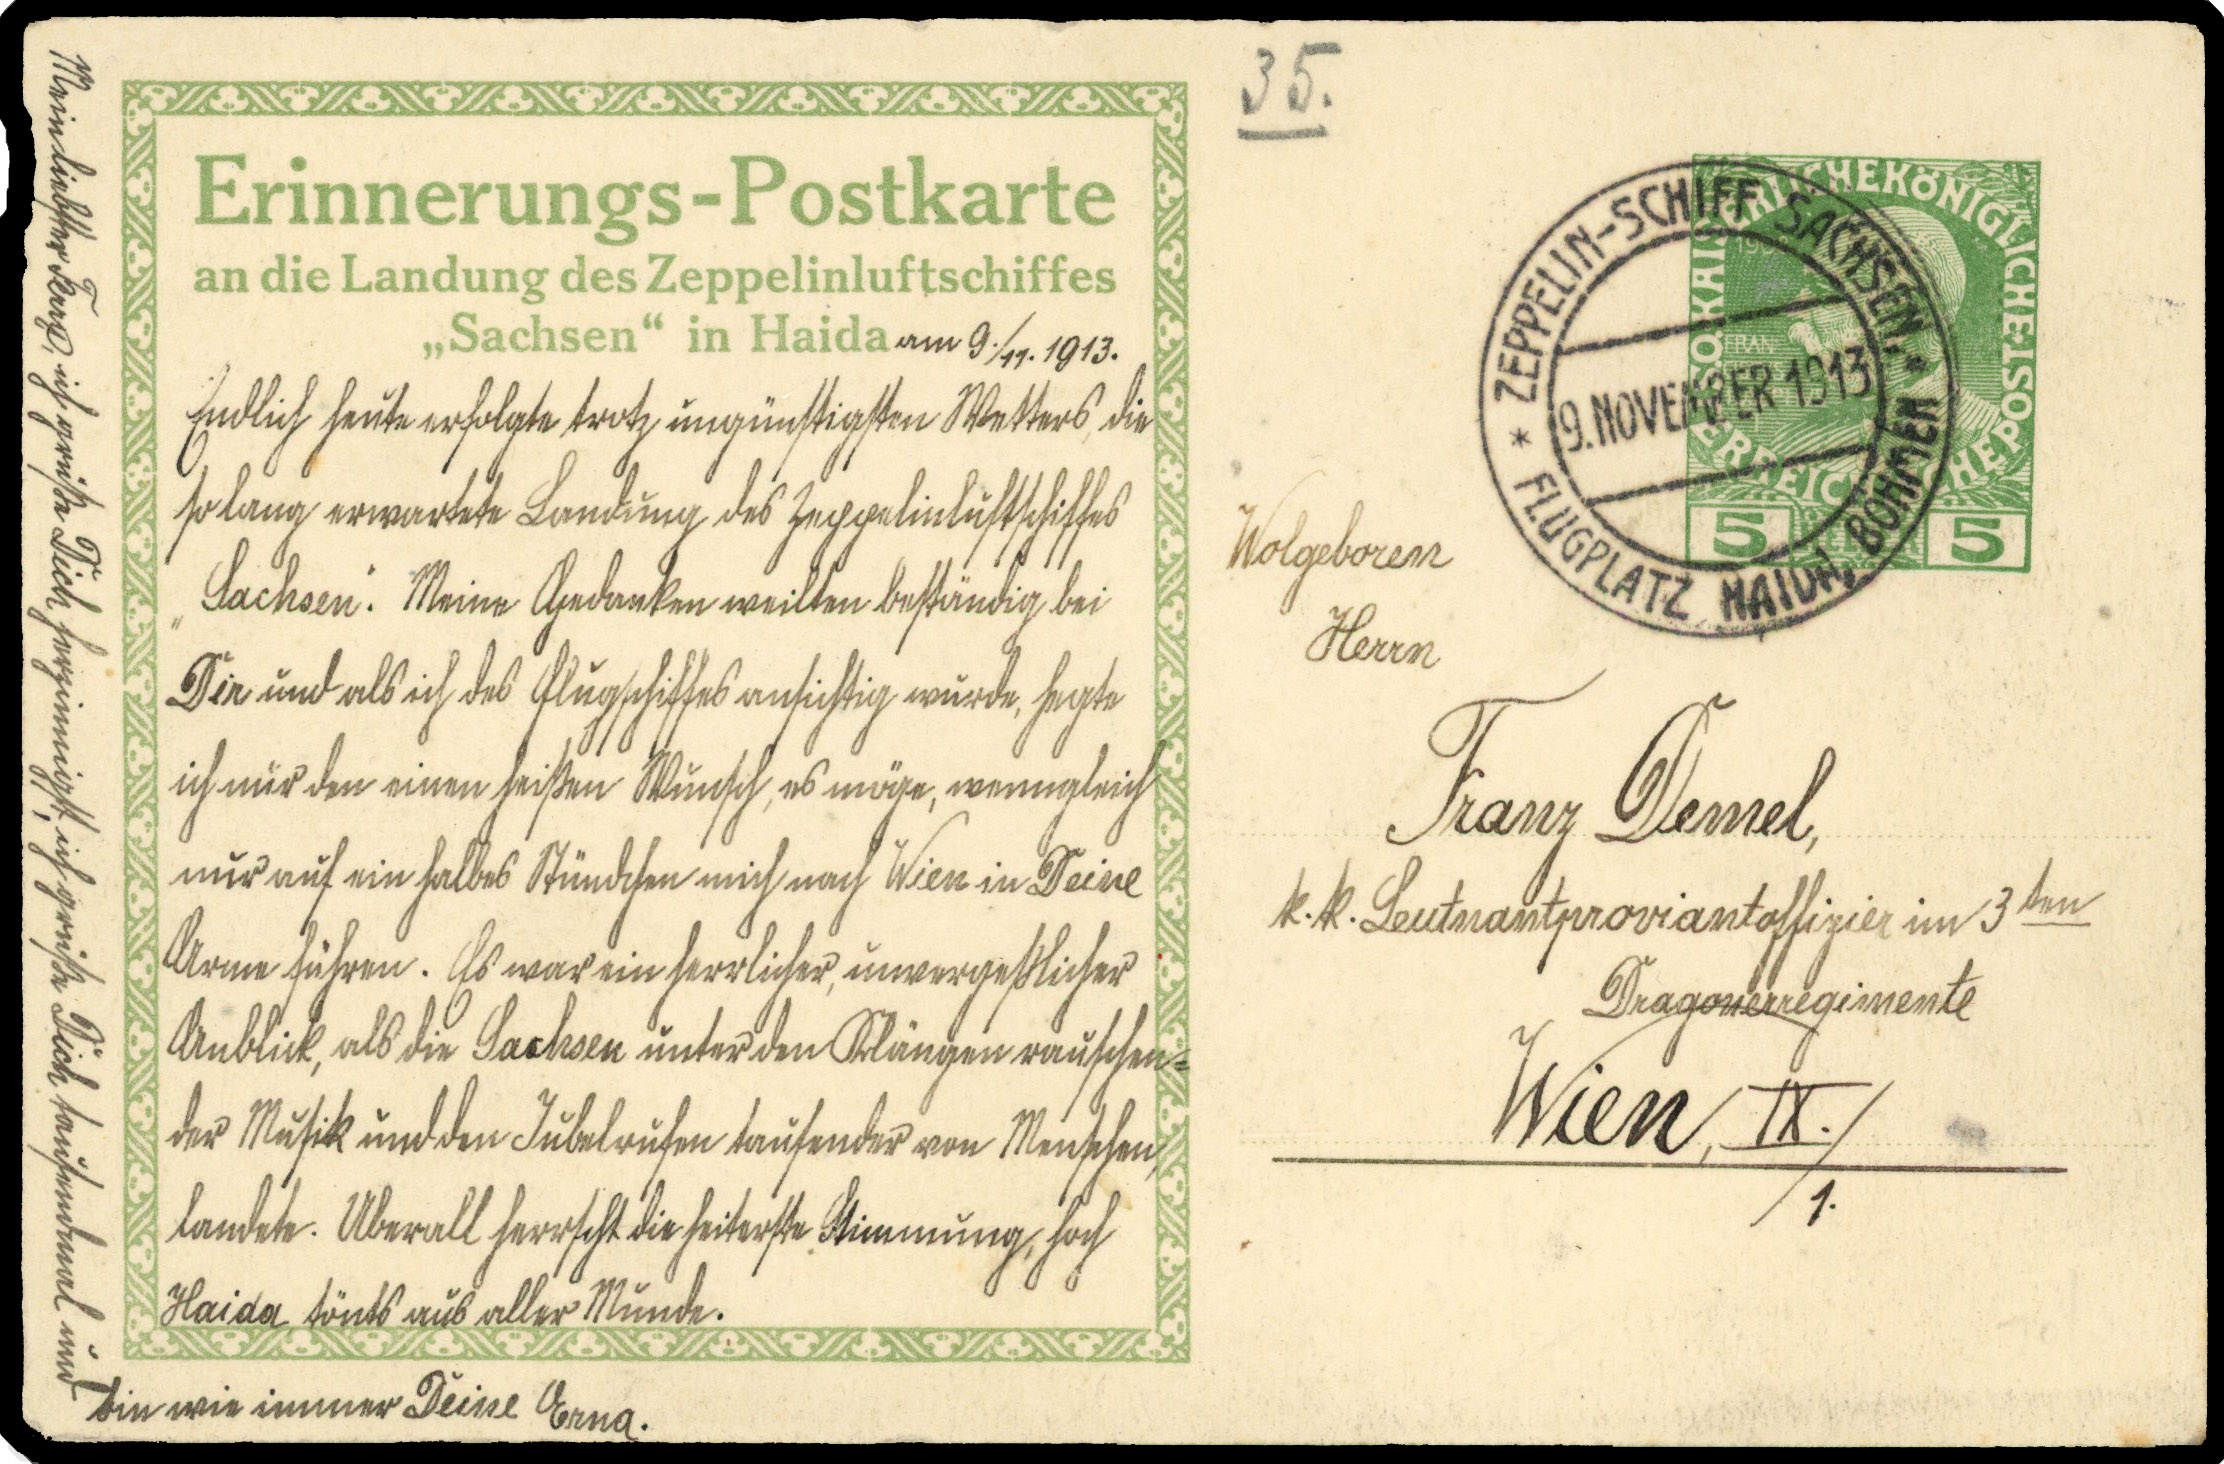 Erinnerungs-Postkarte
an die Landung des Zeppelinluftschiffes
„Sachsen“ in Haida am 9./11. 1913.
Endlich heute erfolgte trotz ungünstigsten Wetters, die
so lang erwartete Landung des Zeppelinluftschiffes
„Sachsen“. Meine Gedanken weilten beständig bei
Dir und als ich des Flugschiffes ansichtig wurde, hegte
ich nur den einen heißen Wunsch, es möge, wenngleich
nur auf ein halbes Stündchen mich nach Wien in Deine
Arme führen. Es war ein herrlicher, unvergeßlicher
Anblick, als die Sachsen unter den Klängen rauschen=
der Musik und den Jubelrufen tausender von Menschen,
landete. Überall herrscht die heiterste Stimmung, hoch
Haida tönts aus aller Munde.
Mein liebster Franz, ich grüße Dich herzinnigst, ich grüße Dich tausendmal und
bin wie immer Deine Erna.
35.
ZEPPELIN-SCHIFF SACHSEN.
9. NOVEMBER 1913
* FLUGPLATZ HAIDA, BÖHMEN *
KAISERLICHE KÖNIGLICHE
ÖSTERREICHISCHE POST
5 5
Wolgeboren
Herrn
Franz Demel,
k. k. Leutnantproviantoffizier im 3ten
Dragonerregimente
Wien, IX./1.